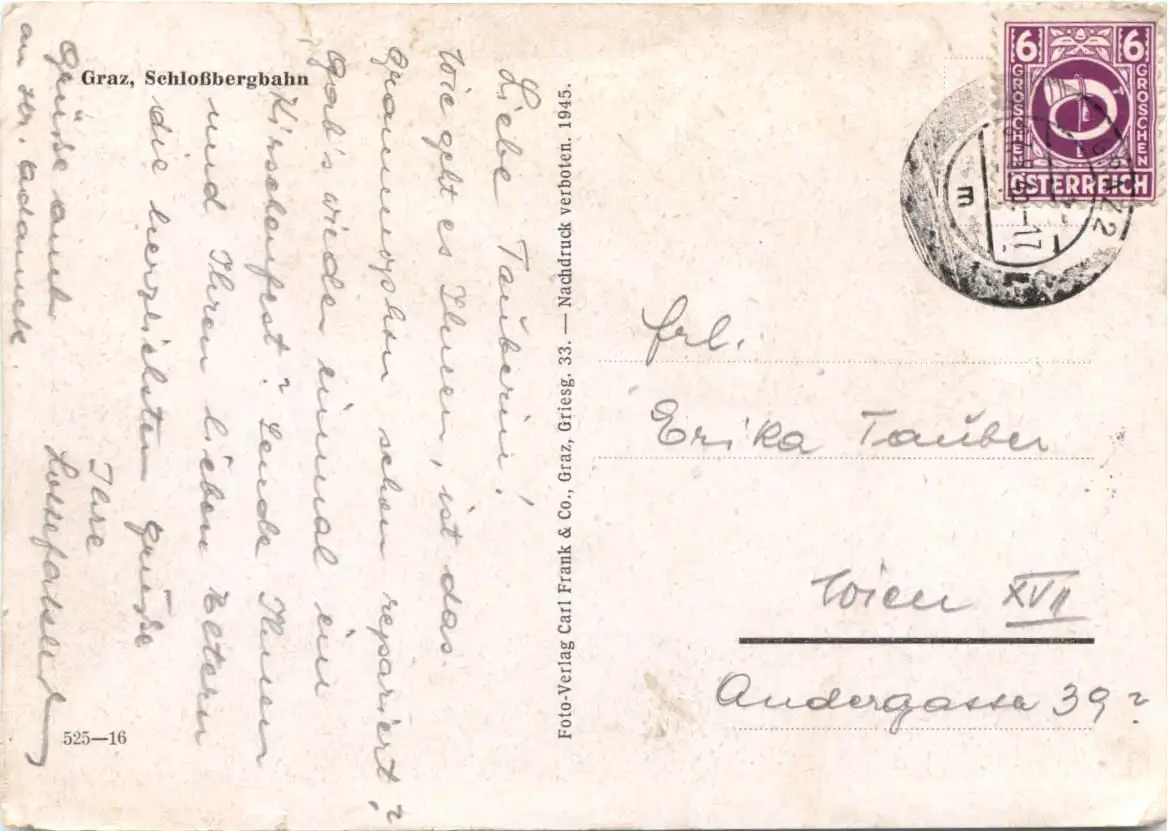 Graz, Schloßbergbahn
Liebe Tauberin!
Wie geht es Ihnen, ist das
Grammophon schon repariert?
Gab's wieder einmal ein
Kirschenfest? Sende Ihnen
und Ihren lieben Eltern
die herzlichsten Grüße
Ihre
Grüße auch
an Hr. Adamek.
525—16
Foto-Verlag Carl Frank & Co., Graz, Griesg. 33. — Nachdruck verboten. 1945.
6 6
GROSCHEN GROSCHEN
ÖSTERREICH
Frl.
Erika Tauber
Wien XVII
Andergasse 39?